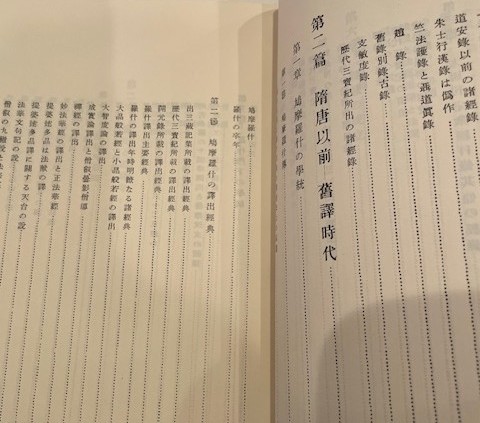 道安錄以前の諸經錄
朱士行漢錄は僞作
竺法護錄と聶道眞錄
趙錄
舊錄別錄古錄
支敏度錄
歷代三寶紀所出の諸經錄
第二篇 隋唐以前 舊譯時代
第一章 鳩摩羅什の學統
鳩摩羅什
羅什の卒年
第二節 鳩摩羅什の譯出經典
出三藏記集所載の譯出經典
歷代三寶紀所載の譯出經典
開元錄所載の譯出經典
羅什譯出主要經典
羅什の譯出年時明瞭なる諸經典
大品般若經と小品般若經の譯出
大智度論の譯出
成實論譯出と僧叡曇影僧導
禪經の譯出
妙法華經の譯出と正法華經
提婆達多品は法獻の譯
提婆達多品譯に關する天台の說
法華文句記の說